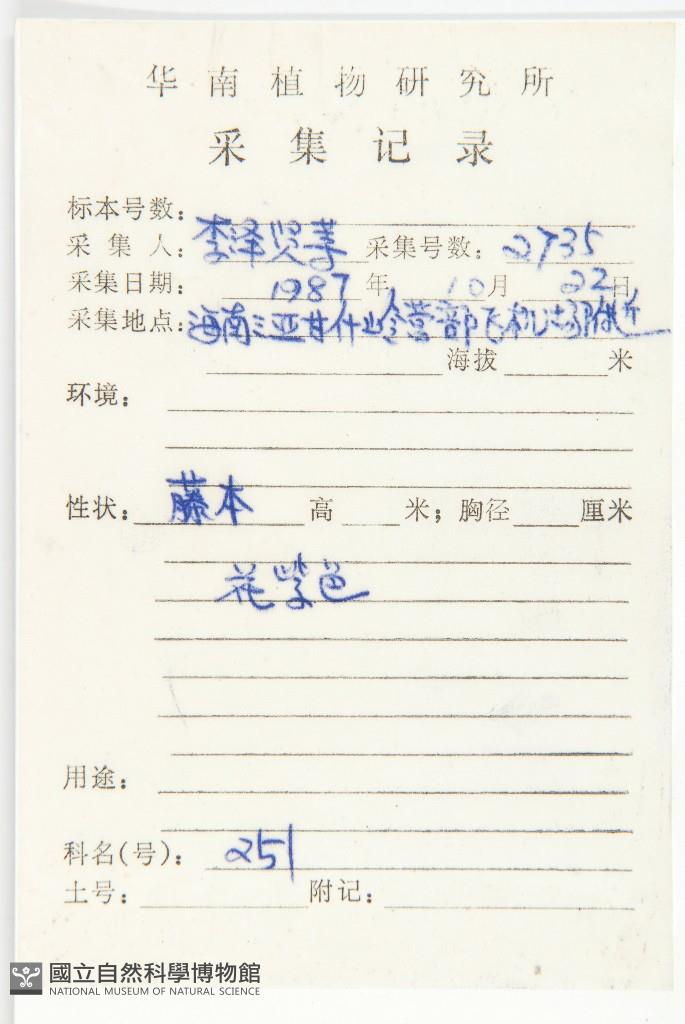 华南植物研究所
采集记录
标本号数:
采集人: 李泽贤等 采集号数: 2735
采集日期: 1987 年 10月 22日
采集地点: 海南三亚甘什岭营部飞机场附近
海拔 米
环境:
性状: 藤本 高 米; 胸径 厘米
花紫色
用途:
科名(号): 251
土号: 附记:
國立自然科學博物館
NATIONAL MUSEUM OF NATURAL SCIENCE